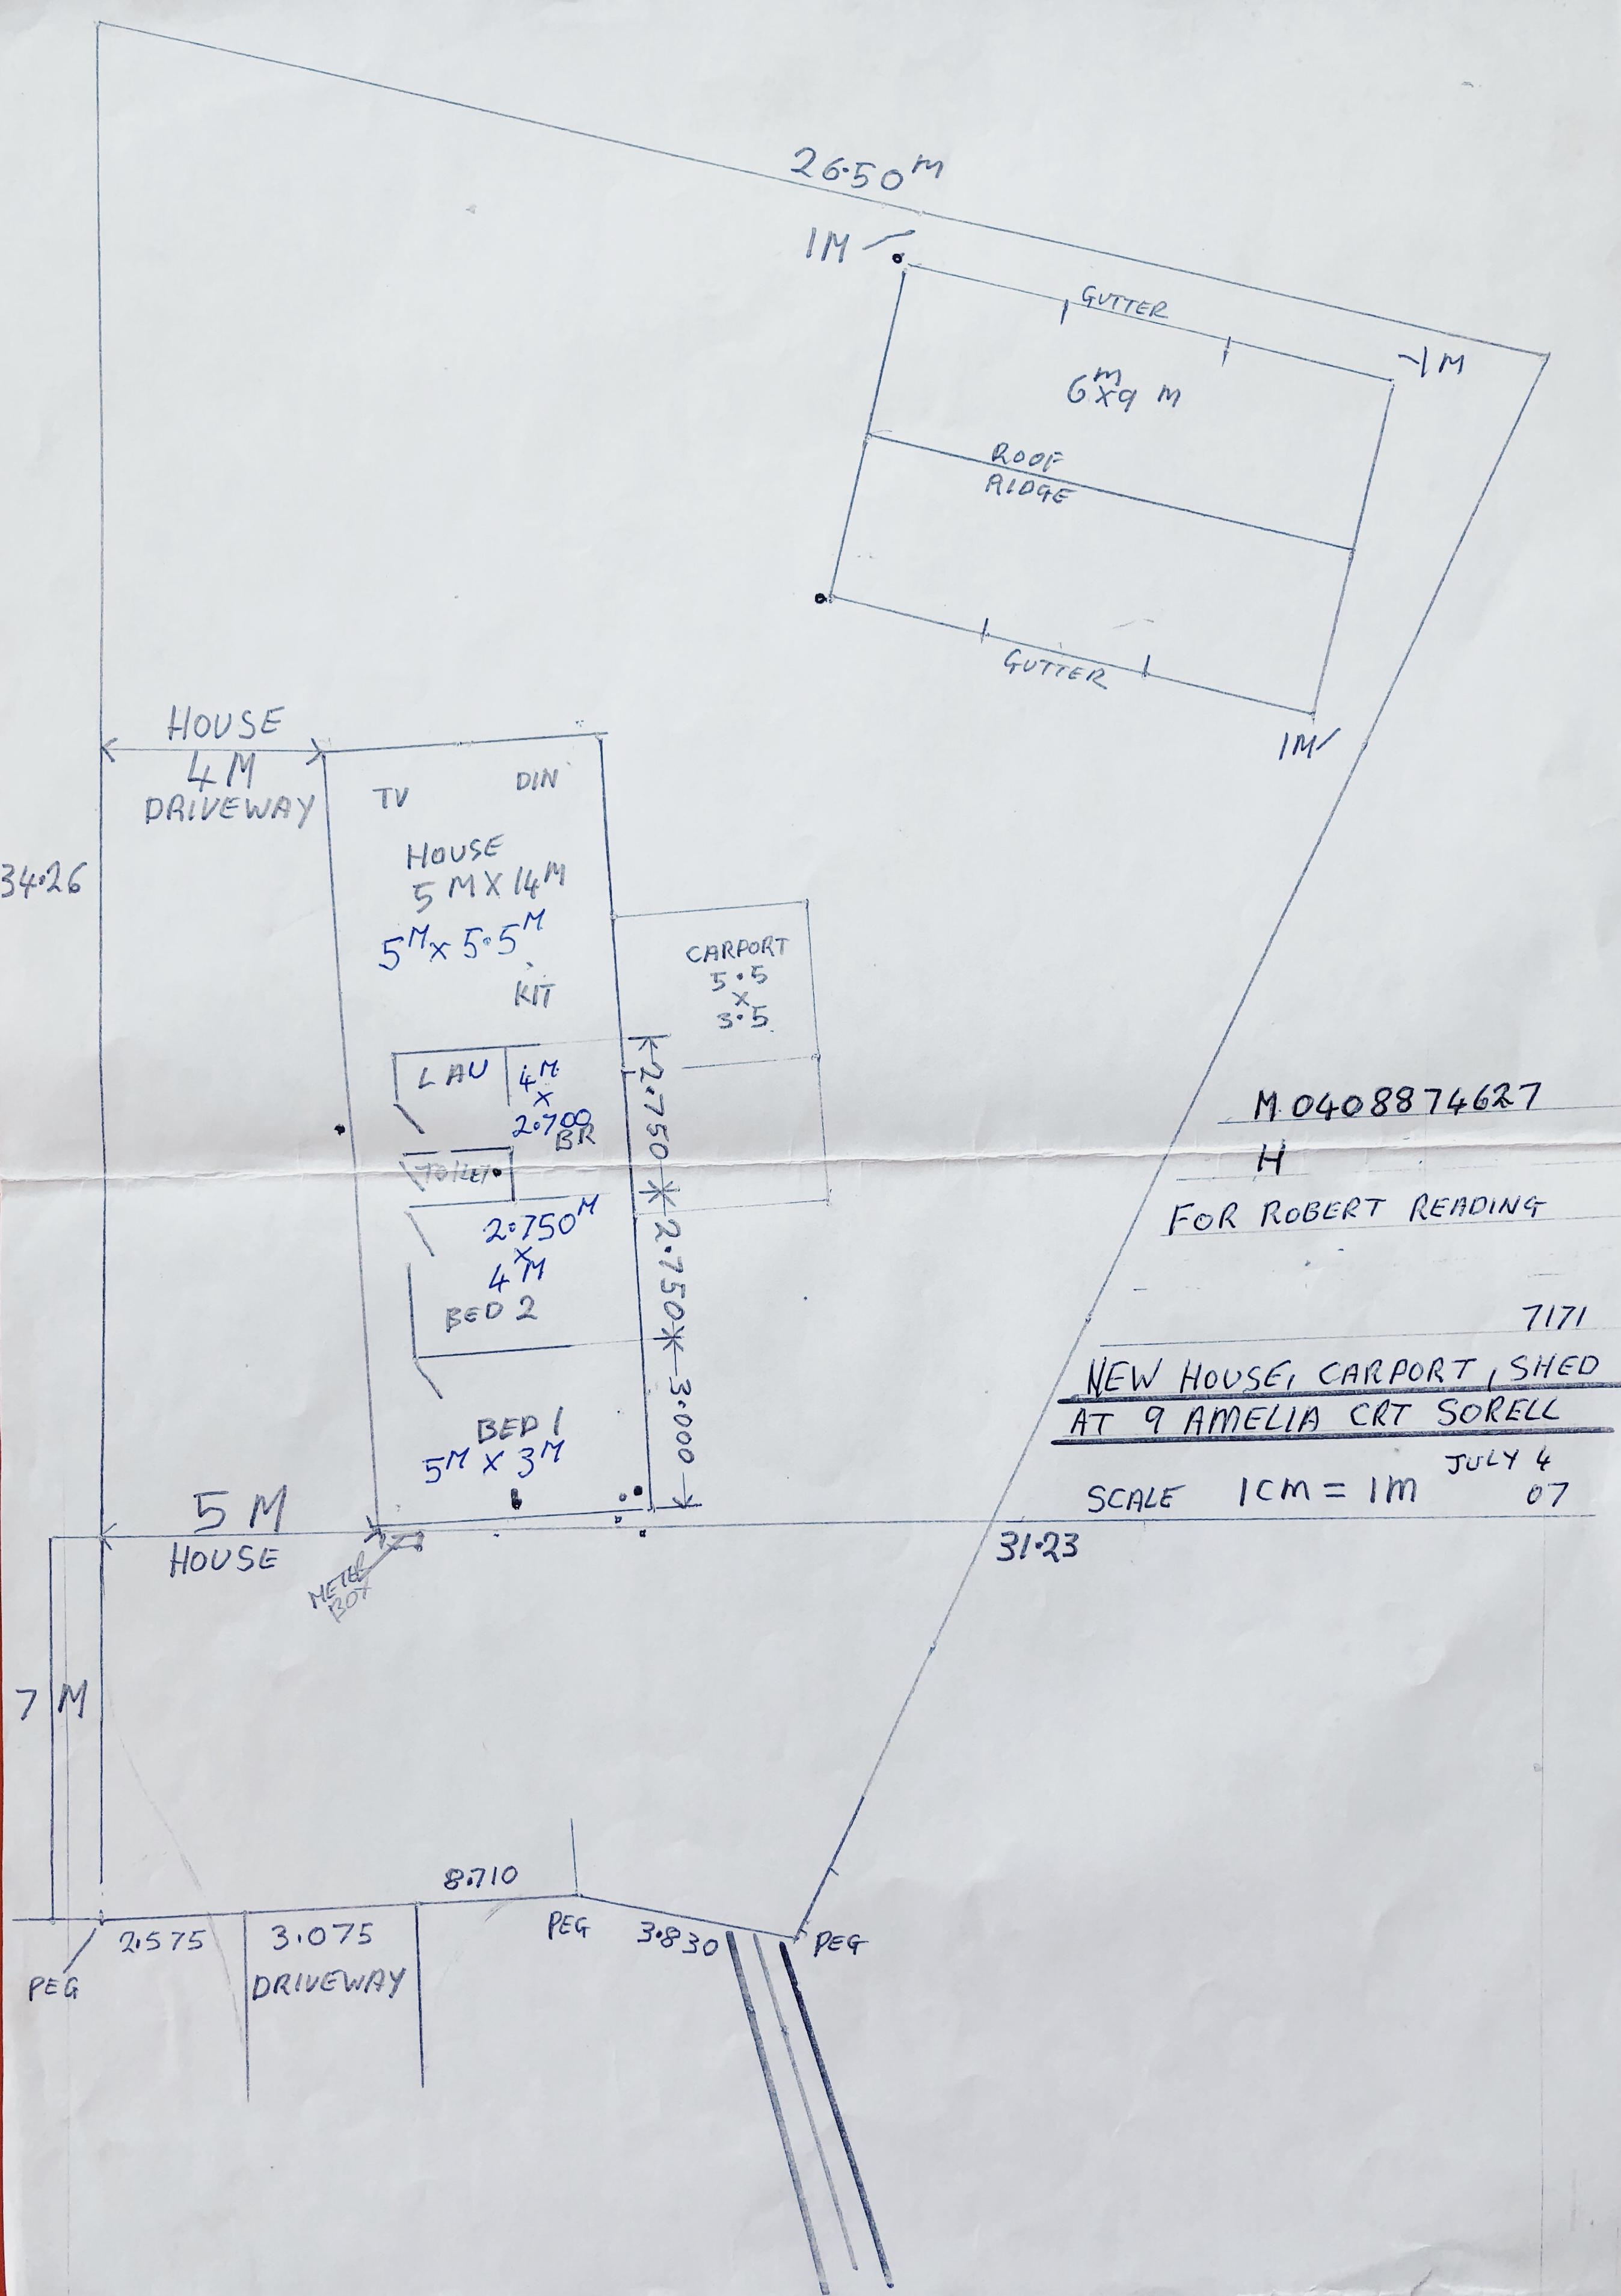 26.50 M
1M
GUTTER
-1 M
6 M X 9 M
ROOF
RIDGE
GUTTER
1M
HOUSE
4 M
DRIVEWAY
TV DIN
34.26
HOUSE
5 M X 14 M
5 M X 5.5 M
KIT
CARPORT
5.5
X
3.5
LAU
4 M
X
2.700
BR
TOILET
2.750
2.750 M
X
4 M
BED 2
2.750
BED 1
5 M X 3 M
3.000
M 0408874627
H
FOR ROBERT READING
7171
NEW HOUSE, CARPORT, SHED
AT 9 AMELIA CRT SORELL
JULY 4
07
SCALE 1CM = 1M
5 M
HOUSE
METER
BOX
31.23
7 M
8.710
PEG
2.575
3.075
DRIVEWAY
PEG
3.830
PEG